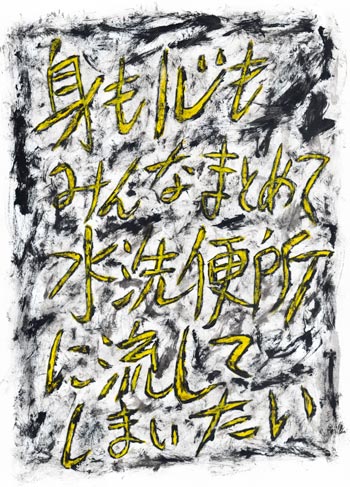 身も心も
みんなまとめて
水洗便所
に流して
しまいたい